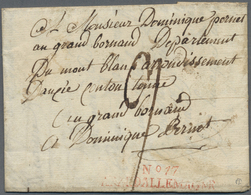 A Monsieur Dominique pernet
au grand bornand Departement
Du mont blanc arrondissement
Danecie canton
au grand bornand
A Dominique Pernet
No 17
ALLEMAGNE